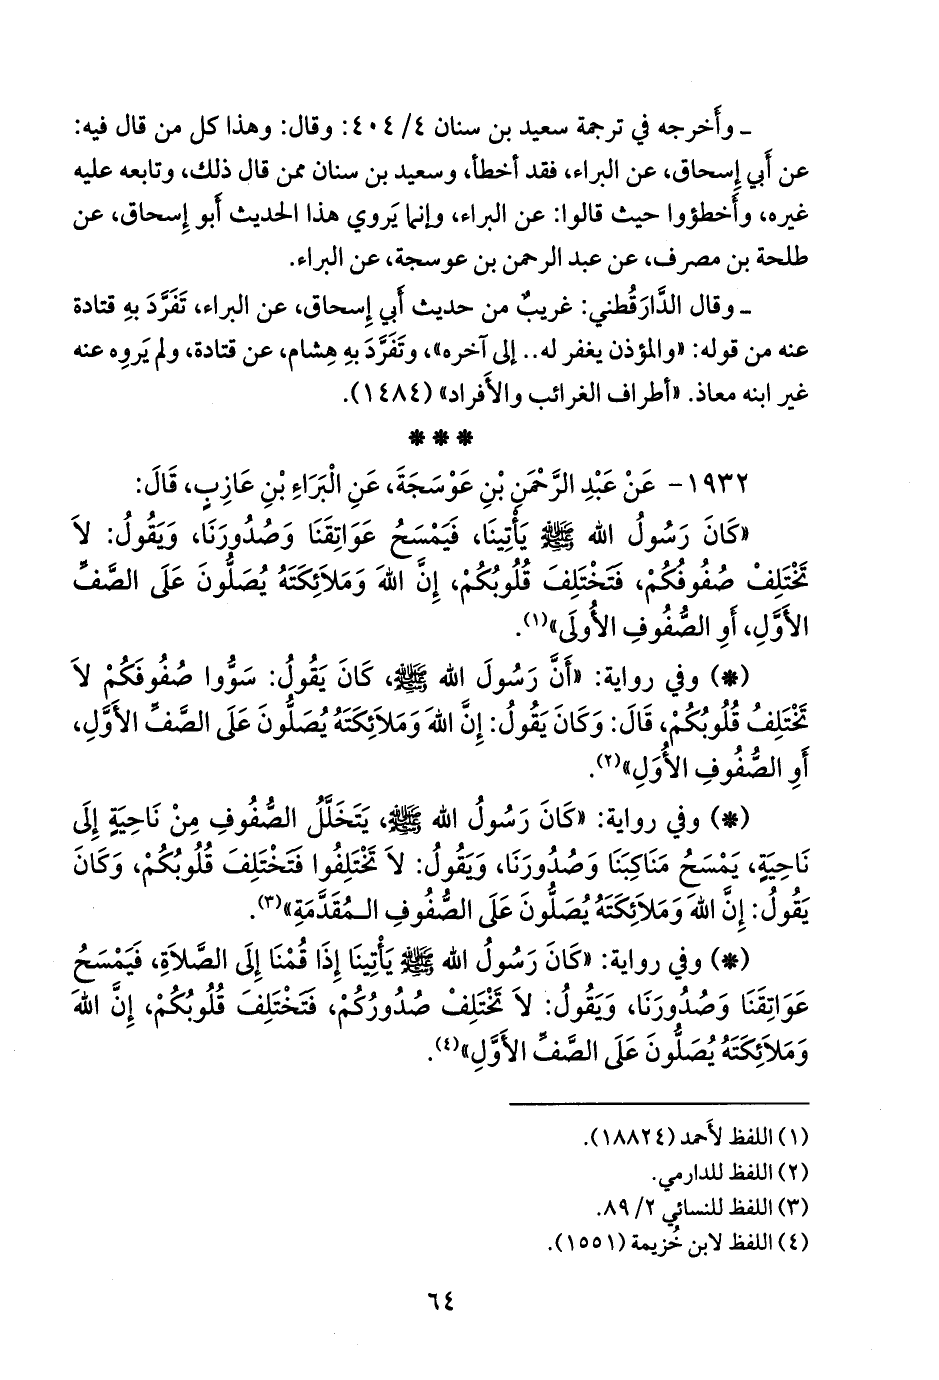 ـ وأَخرجه في ترجمة سعيد بن سنان ٤/ ٤٠٤: وقال: وهذا كل من قال فيه:
عن أَبي إِسحاق، عن البراء، فقد أخطأ، وسعيد بن سنان ممن قال ذلك، وتابعه عليه
غيره، وأَخطؤوا حيث قالوا: عن البراء، وإنما يَروي هذا الحديث أَبو إِسحاق، عن
طلحة بن مصرف، عن عبد الرحمن بن عوسجة، عن البراء.
ـ وقال الدَّارَقُطني: غريبٌ من حديث أَبي إِسحاق، عن البراء، تَفَرَّدَ بهِ قتادة
عنه من قوله: «والمؤذن يغفر له.. إلى آخره»، وتَفَرَّدَ بهِ هِشام، عن قتادة، ولم يَروِه عنه
غير ابنه معاذ. «أطراف الغرائب والأَفراد» (١٤٨٤).
* * *
١٩٣٢- عَنْ عَبْدِ الرَّحْمَنِ بْنِ عَوْسَجَةَ، عَنِ الْبَرَاءِ بْنِ عَازِبٍ، قَالَ:
«كَانَ رَسُولُ الله ﷺ يَأْتِينَا، فَيَمْسَحُ عَوَاتِقَنَا وَصُدُورَنَا، وَيَقُولُ: لاَ
تَخْتَلِفْ صُفُوفُكُمْ، فَتَخْتَلِفَ قُلُوبُكُمْ، إِنَّ اللهَ وَمَلاَئِكَتَهُ يُصَلُّونَ عَلَى الصَّفِّ
الأَوَّلِ، أَوِ الصُّفُوفِ الأُولَى»(١).
(*) وفي رواية: «أَنَّ رَسُولَ الله ﷺ، كَانَ يَقُولُ: سَوُّوا صُفُوفَكُمْ لاَ
تَخْتَلِفُ قُلُوبُكُمْ، قَالَ: وَكَانَ يَقُولُ: إِنَّ اللهَ وَمَلاَئِكَتَهُ يُصَلُّونَ عَلَى الصَّفِّ الأَوَّلِ،
أَوِ الصُّفُوفِ الأُوَلِ»(٢).
(*) وفي رواية: «كَانَ رَسُولُ الله ﷺ، يَتَخَلَّلُ الصُّفُوفِ مِنْ نَاحِيَةٍ إِلَى
نَاحِيَةٍ، يَمْسَحُ مَنَاكِبَنَا وَصُدُورَنَا، وَيَقُولُ: لاَ تَخْتَلِفُوا فَتَخْتَلِفَ قُلُوبُكُمْ، وَكَانَ
يَقُولُ: إِنَّ اللهَ وَمَلاَئِكَتَهُ يُصَلُّونَ عَلَى الصُّفُوفِ الـمُقَدَّمَةِ»(٣).
(*) وفي رواية: «كَانَ رَسُولُ الله ﷺ يَأْتِينَا إِذَا قُمْنَا إِلَى الصَّلاَةِ، فَيَمْسَحُ
عَوَاتِقَنَا وَصُدُورَنَا، وَيَقُولُ: لاَ تَخْتَلِفْ صُدُورُكُمْ، فَتَخْتَلِفَ قُلُوبُكُمْ، إِنَّ اللهَ
وَمَلاَئِكَتَهُ يُصَلُّونَ عَلَى الصَّفِّ الأَوَّلِ»(٤).
(١) اللفظ لأَحمد (١٨٨٢٤).
(٢) اللفظ للدارمي.
(٣) اللفظ للنسائي ٢/ ٨٩.
(٤) اللفظ لابن خُزيمة (١٥٥١).
٦٤